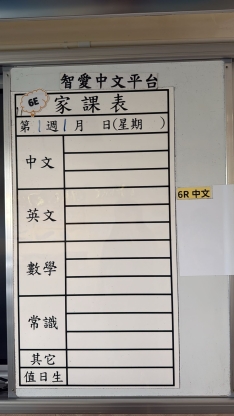 智愛中文平台
6E
家課表
第1週1月 日(星期 )
中文
6R 中文
英文
數學
常識
其它
值日生